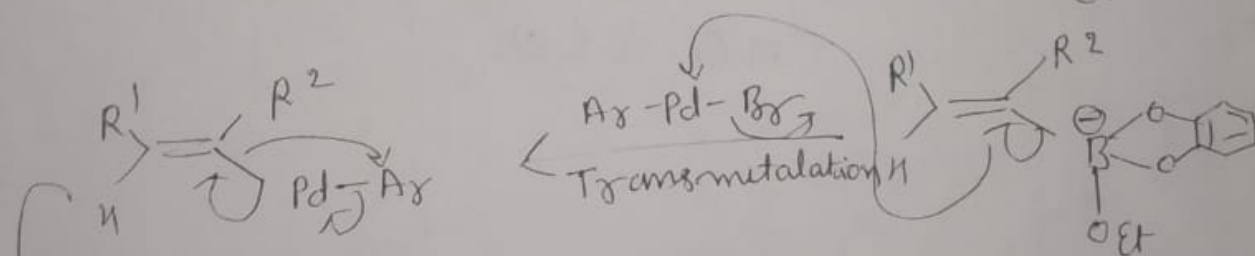 R¹ R²
H Pd-Ar
Ar-Pd-Br
Transmetalation
R¹ R²
H ⊖ B O O
OEt